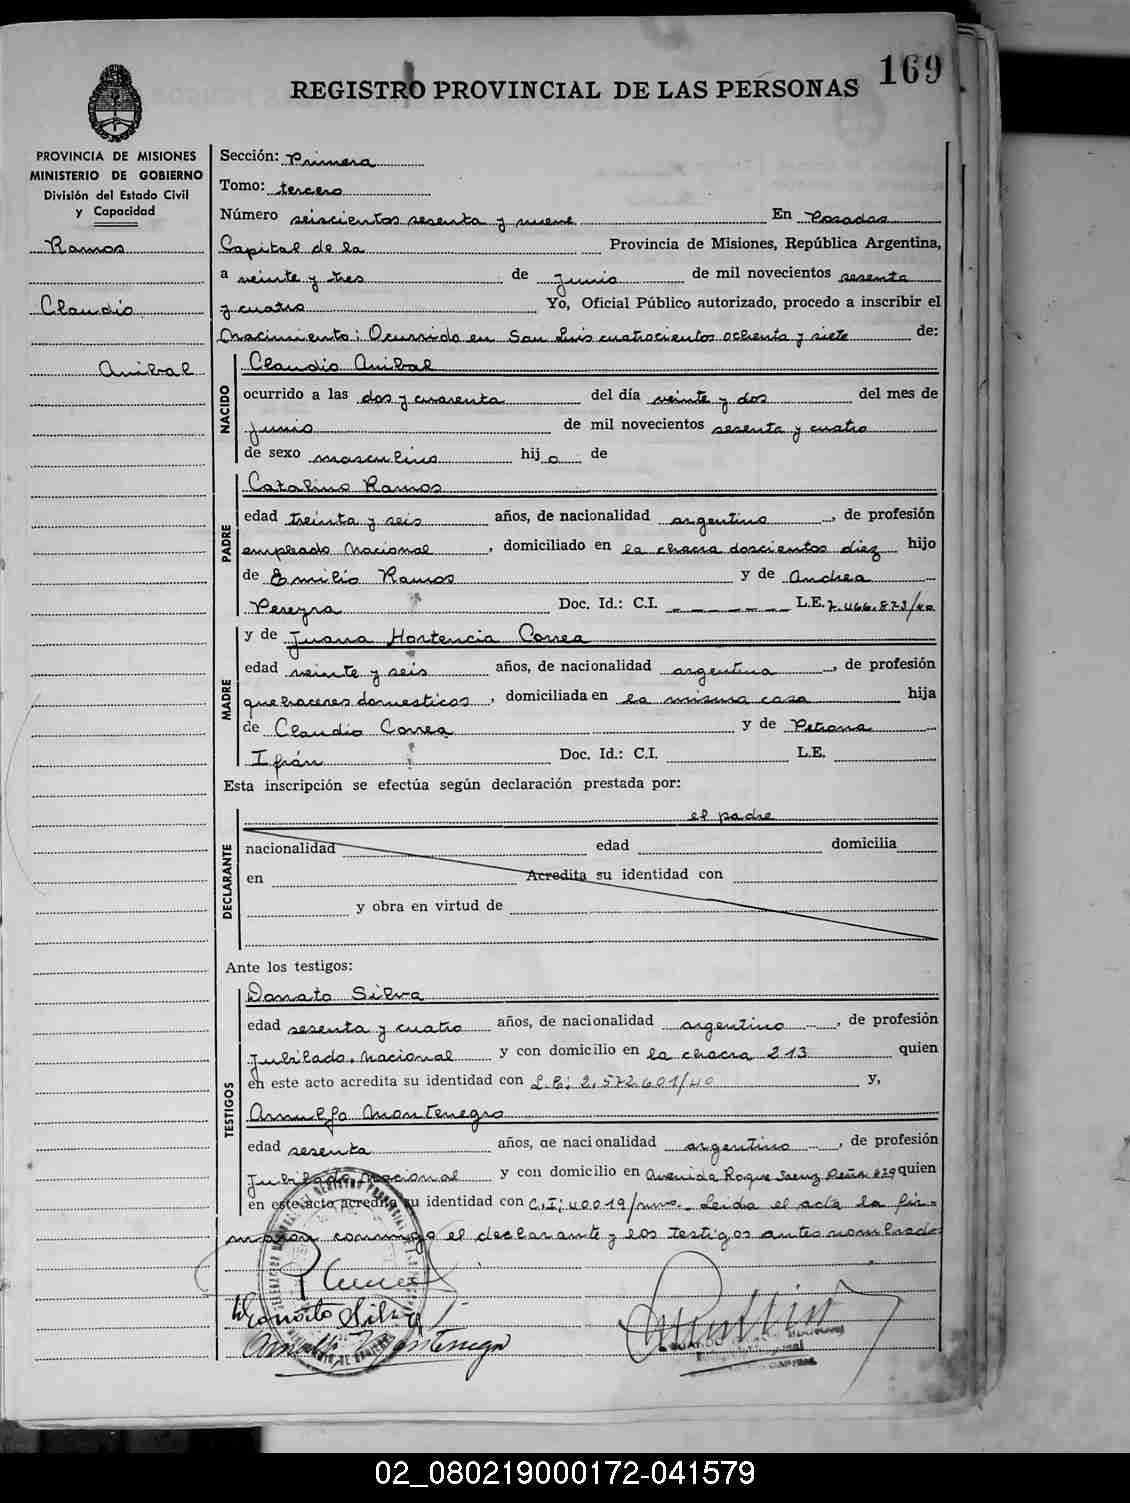 169
REGISTRO PROVINCIAL DE LAS PERSONAS
PROVINCIA DE MISIONES
MINISTERIO DE GOBIERNO
División del Estado Civil
y Capacidad
Ramos
Claudio
Anibal
Sección: Primera
Tomo: tercero
Número seiscientos sesenta y nueve En Posadas
Capital de la Provincia de Misiones, República Argentina,
a veinte y tres de Junio de mil novecientos sesenta
y cuatro Yo, Oficial Público autorizado, procedo a inscribir el
Nacimiento: Ocurrido en San Luis cuatrocientos ochenta y siete de:
NACIDO
Claudio Anibal
ocurrido a las dos y cuarenta del día veinte y dos del mes de
Junio de mil novecientos sesenta y cuatro
de sexo masculino hijo de
PADRE
Catalino Ramos
edad treinta y seis años, de nacionalidad argentino, de profesión
empleado Nacional, domiciliado en la chacra doscientos diez hijo
de Emilio Ramos y de Andrea
Pereyra Doc. Id.: C.I. — — — — — — L.E. 7.466.873/40
MADRE
y de Juana Hortencia Correa
edad veinte y seis años, de nacionalidad argentina, de profesión
quehaceres domesticos, domiciliada en la misma casa hija
de Claudio Correa y de Petrona
Ifrán Doc. Id.: C.I. L.E.
Esta inscripción se efectúa según declaración prestada por:
DECLARANTE
el padre
nacionalidad edad domicilia
en Acredita su identidad con
y obra en virtud de
Ante los testigos:
TESTIGOS
Donato Silva
edad sesenta y cuatro años, de nacionalidad argentino, de profesión
Jubilado Nacional y con domicilio en la chacra 213 quien
en este acto acredita su identidad con L.E: 2.572.601/40 y,
Arnulfo Montenegro
edad sesenta años, de nacionalidad argentino, de profesión
Jubilado Nacional y con domicilio en Avenida Roque Saenz Peña 639 quien
en este acto acredita su identidad con C.I: 40019/mnes. Leida el acta la fir-
maron conmigo el declarante y los testigos antes nombrados
Donato Silva
Montenegro
02_080219000172-041579